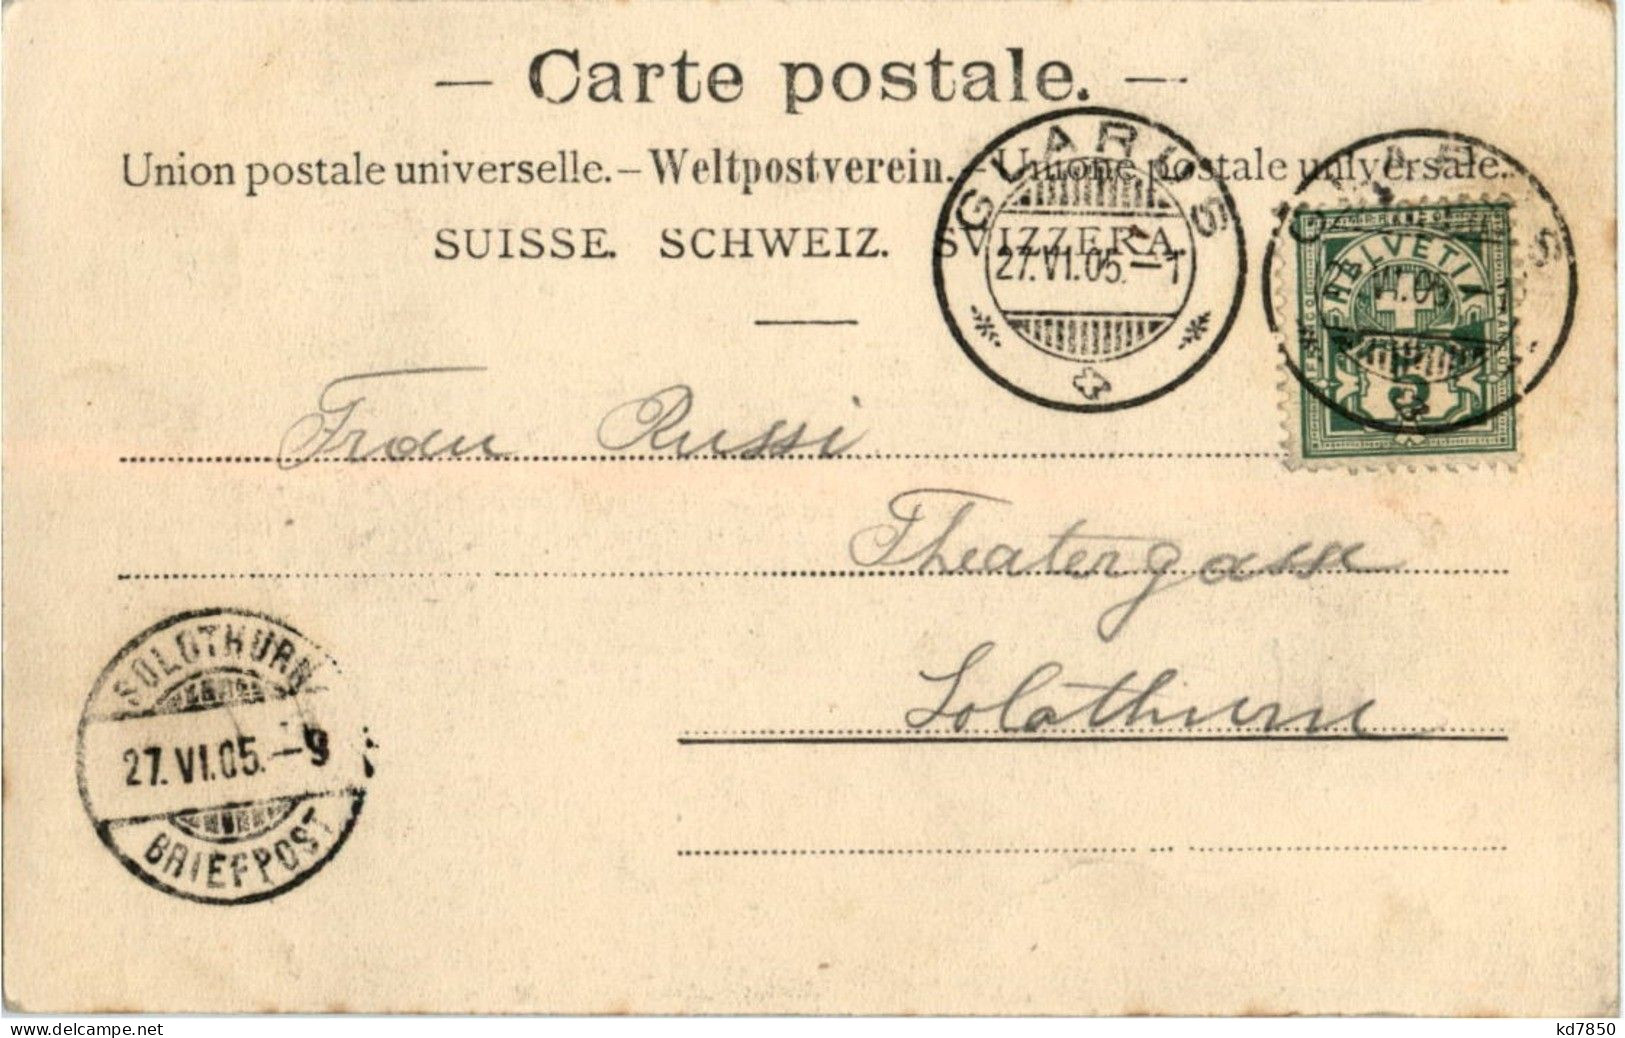 — Carte postale. —
Union postale universelle. – Weltpostverein. – Unione postale universale.
SUISSE. SCHWEIZ. SVIZZERA.
GLARUS
27.VI.05.–1
GLARUS
VI.05
HELVETIA
FRANCO
5
Frau Russi
Theatergasse
Solothurn
SOLOTHURN
27.VI.05.–9
BRIEFPOST
delcampe.net
kd7850